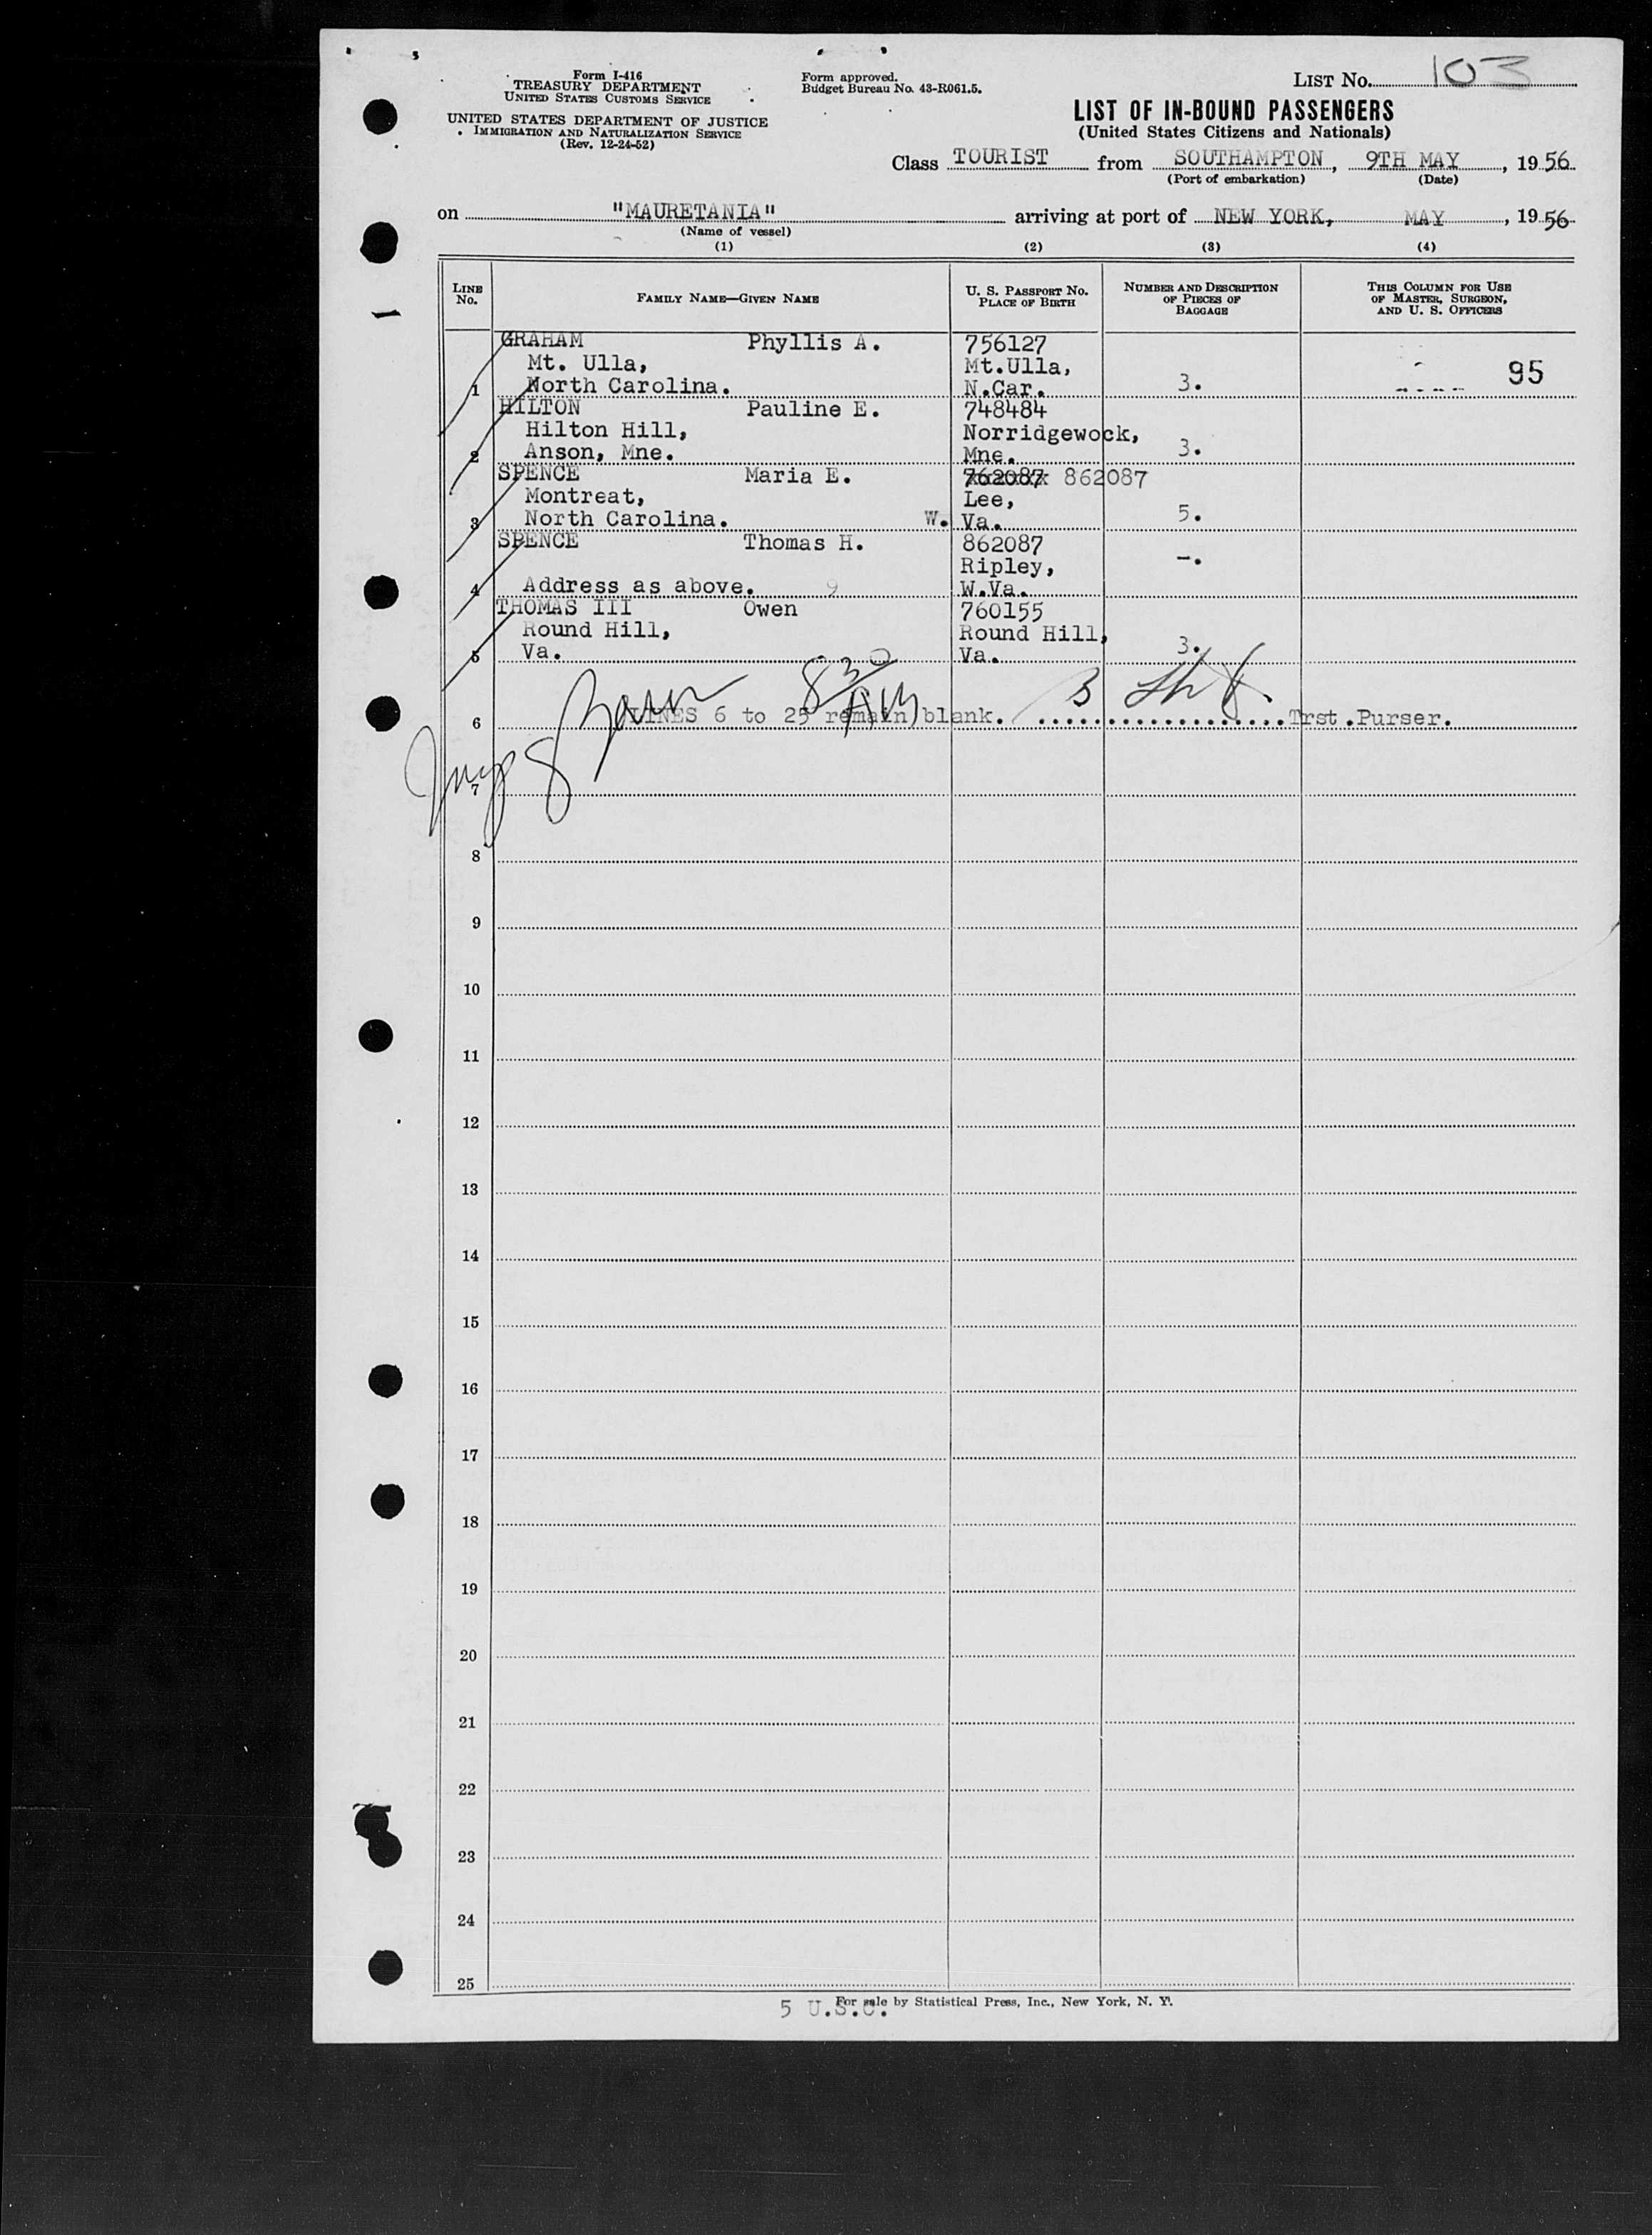 Form I-416
TREASURY DEPARTMENT
UNITED STATES CUSTOMS SERVICE
UNITED STATES DEPARTMENT OF JUSTICE
IMMIGRATION AND NATURALIZATION SERVICE
(Rev. 12-24-52)
Form approved.
Budget Bureau No. 43-R061.5.
LIST No. 103
LIST OF IN-BOUND PASSENGERS
(United States Citizens and Nationals)
Class TOURIST from SOUTHAMPTON, 9TH MAY, 1956
(Port of embarkation) (Date)
on "MAURETANIA" arriving at port of NEW YORK, MAY, 1956
(Name of vessel)
(1) (2) (3) (4)
LINE No. FAMILY NAME—GIVEN NAME U. S. PASSPORT No. PLACE OF BIRTH NUMBER AND DESCRIPTION OF PIECES OF BAGGAGE THIS COLUMN FOR USE OF MASTER, SURGEON, AND U. S. OFFICERS
GRAHAM Phyllis A. 756127
Mt. Ulla, Mt.Ulla,
1 North Carolina. N.Car. 3. 95
HILTON Pauline E. 748484
Hilton Hill, Norridgewock,
2 Anson, Mne. Mne. 3.
SPENCE Maria E. 762087 862087
Montreat, Lee,
3 North Carolina. W. Va. 5.
SPENCE Thomas H. 862087
Ripley, -.
4 Address as above. 9 W.Va.
THOMAS III Owen 760155
Round Hill, Round Hill,
5 Va. Va. 3.
830 AM
6 LINES 6 to 25 remain blank. ................... Trst.Purser.
7
8
9
10
11
12
13
14
15
16
17
18
19
20
21
22
23
24
25
For sale by Statistical Press, Inc., New York, N. Y.
5 U.S.C.